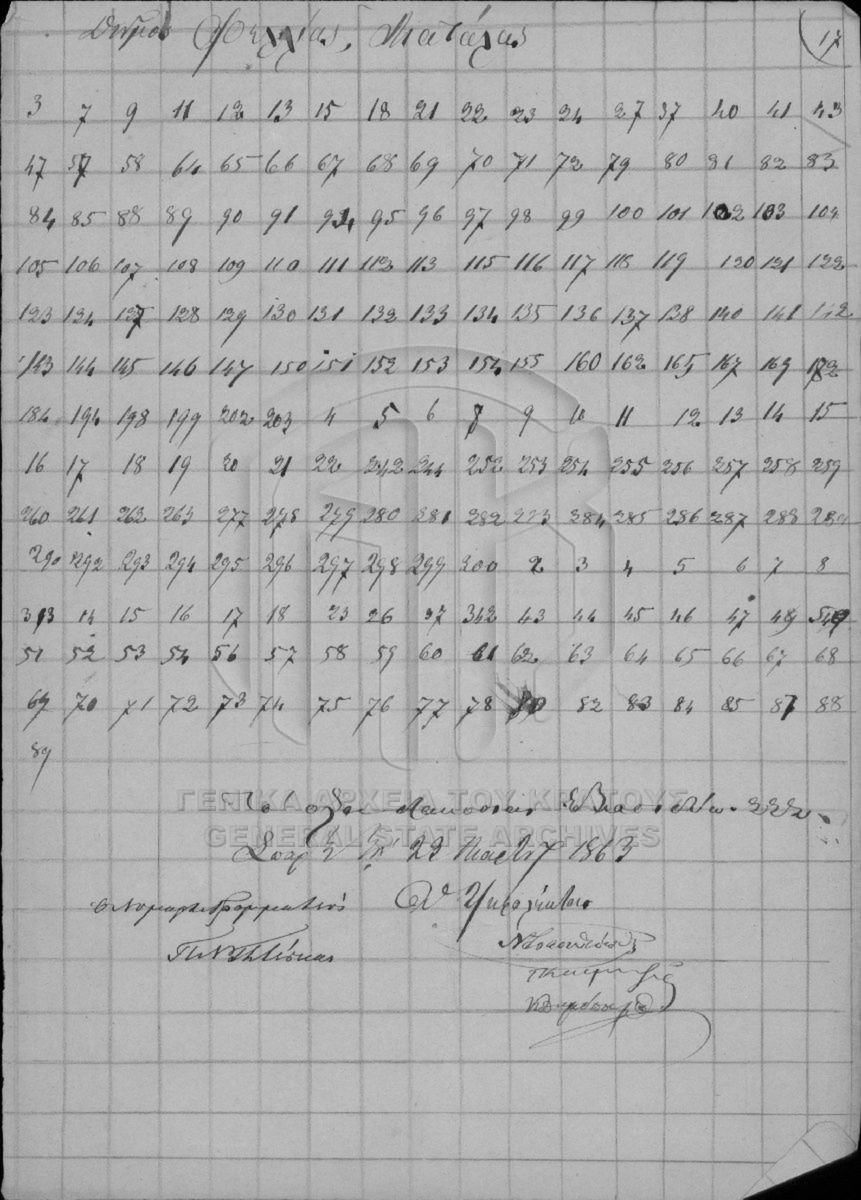 Δήμος Φελλίας, Ματάλας
17
3 7 9 11 12 13 15 18 21 22 23 24 27 37 40 41 43
47 57 58 64 65 66 67 68 69 70 71 72 79 80 81 82 83
84 85 88 89 90 91 94 95 96 97 98 99 100 101 102 103 104
105 106 107 108 109 110 111 112 113 115 116 117 118 119 120 121 122
123 124 127 128 129 130 131 132 133 134 135 136 137 138 140 141 142
143 144 145 146 147 150 151 152 153 154 155 160 162 165 167 169 172
184 194 198 199 202 203 4 5 6 8 9 10 11 12 13 14 15
16 17 18 19 20 21 22 242 244 252 253 254 255 256 257 258 259
260 261 262 263 277 278 279 280 281 282 283 284 285 286 287 288 289
290 292 293 294 295 296 297 298 299 300 2 3 4 5 6 7 8
313 14 15 16 17 18 23 26 37 342 43 44 45 46 47 48 549
51 52 53 54 56 57 58 59 60 61 62 63 64 65 66 67 68
69 70 71 72 73 74 75 76 77 78 80 82 83 84 85 87 88
89
ΓΕΝΙΚΑ ΑΡΧΕΙΑ ΤΟΥ ΚΡΑΤΟΥΣ
Το όλον διακόσιαι 222
GENERAL STATE ARCHIVES
τη 22 Μαρτίου 1863